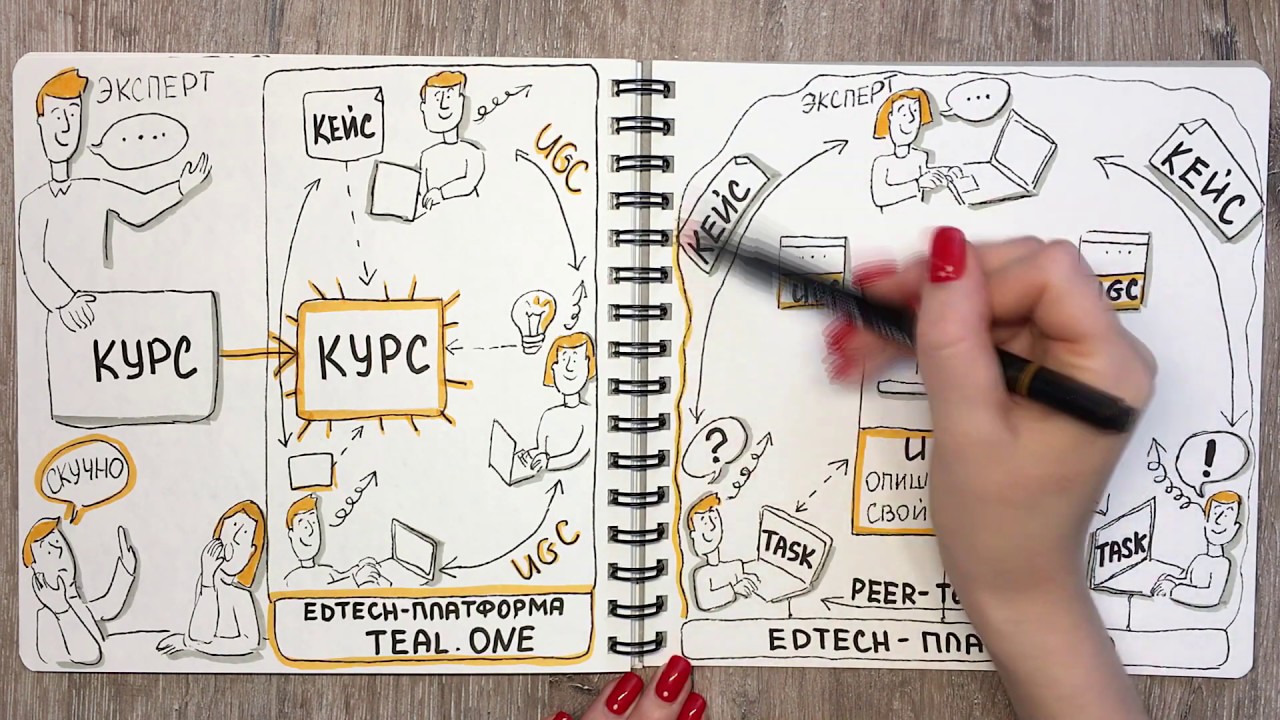 ЭКСПЕРТ
...
КУРС
СКУЧНО
КЕЙС
UGC
КУРС
UGC
EDTECH-ПЛАТФОРМА
TEAL.ONE
ЭКСПЕРТ
...
КЕЙС
КЕЙС
UGC
?
!
ОПИШ
СВОЙ
TASK
TASK
PEER-TO
EDTECH-ПЛА